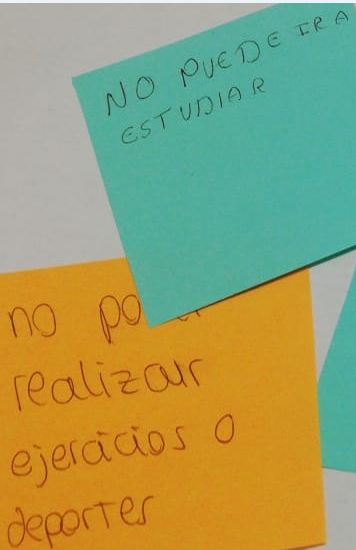 NO PUEDE IR A
ESTUDIAR
no
realizar
ejercicios o
deportes